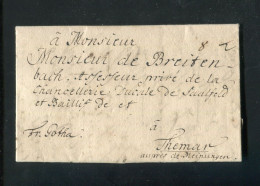 à Monsieur
Monsieur de Breiten-
bach: Assesseur privé de la
Chancellerie Ducale de Saalfeld
et Baillif de et
à
fr. Gotha.
Themar
auprès de Meinungen